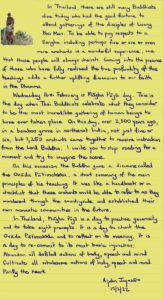 In Thailand, there are still many Buddhists
alive today who had the good fortune to
attend gatherings of the disciples of Luang
Por Mun. To be able to pay respects to a
Sangha including perhaps five or six or even
more arahants is a wonderful experience, one
that those people will always cherish. Coming into the presence
of those who have fully realized the true profundity of the
teachings adds a further uplifting dimension to our faith
in the Dhamma.
Wednesday 16th February is Māgha Pūjā day. This is
the day when Thai Buddhists celebrate what they consider
to be the most incredible gathering of human beings to
have ever taken place. On this day, over 2,500 years ago,
in a bamboo grove in northeast India, not just five or
six, but 1,250 arahants came together to receive instruction
from the Lord Buddha. I invite you to stop reading for a
moment and try to imagine the scene.
On this occasion, the Buddha gave a discourse called
the Ovāda Pāṭimokkha, a short summary of the main
principles of his teachings. It was like a handbook or a
checklist that these arahants would be able to refer to as they
wandered through the countryside and established their
own monastic communities in the future.
In Thailand, Māgha Pūjā is a day to practise generosity
and to take eight precepts. It is a day to chant the
Ovāda Pāṭimokkha and to reflect on its meaning. It is
a day to re-commit to its most basic injunction:
Abandon all defiled actions of body, speech and mind
Cultivate all wholesome actions of body, speech and mind
Purify the heart
Ajahn Jayasaro
15/2/22